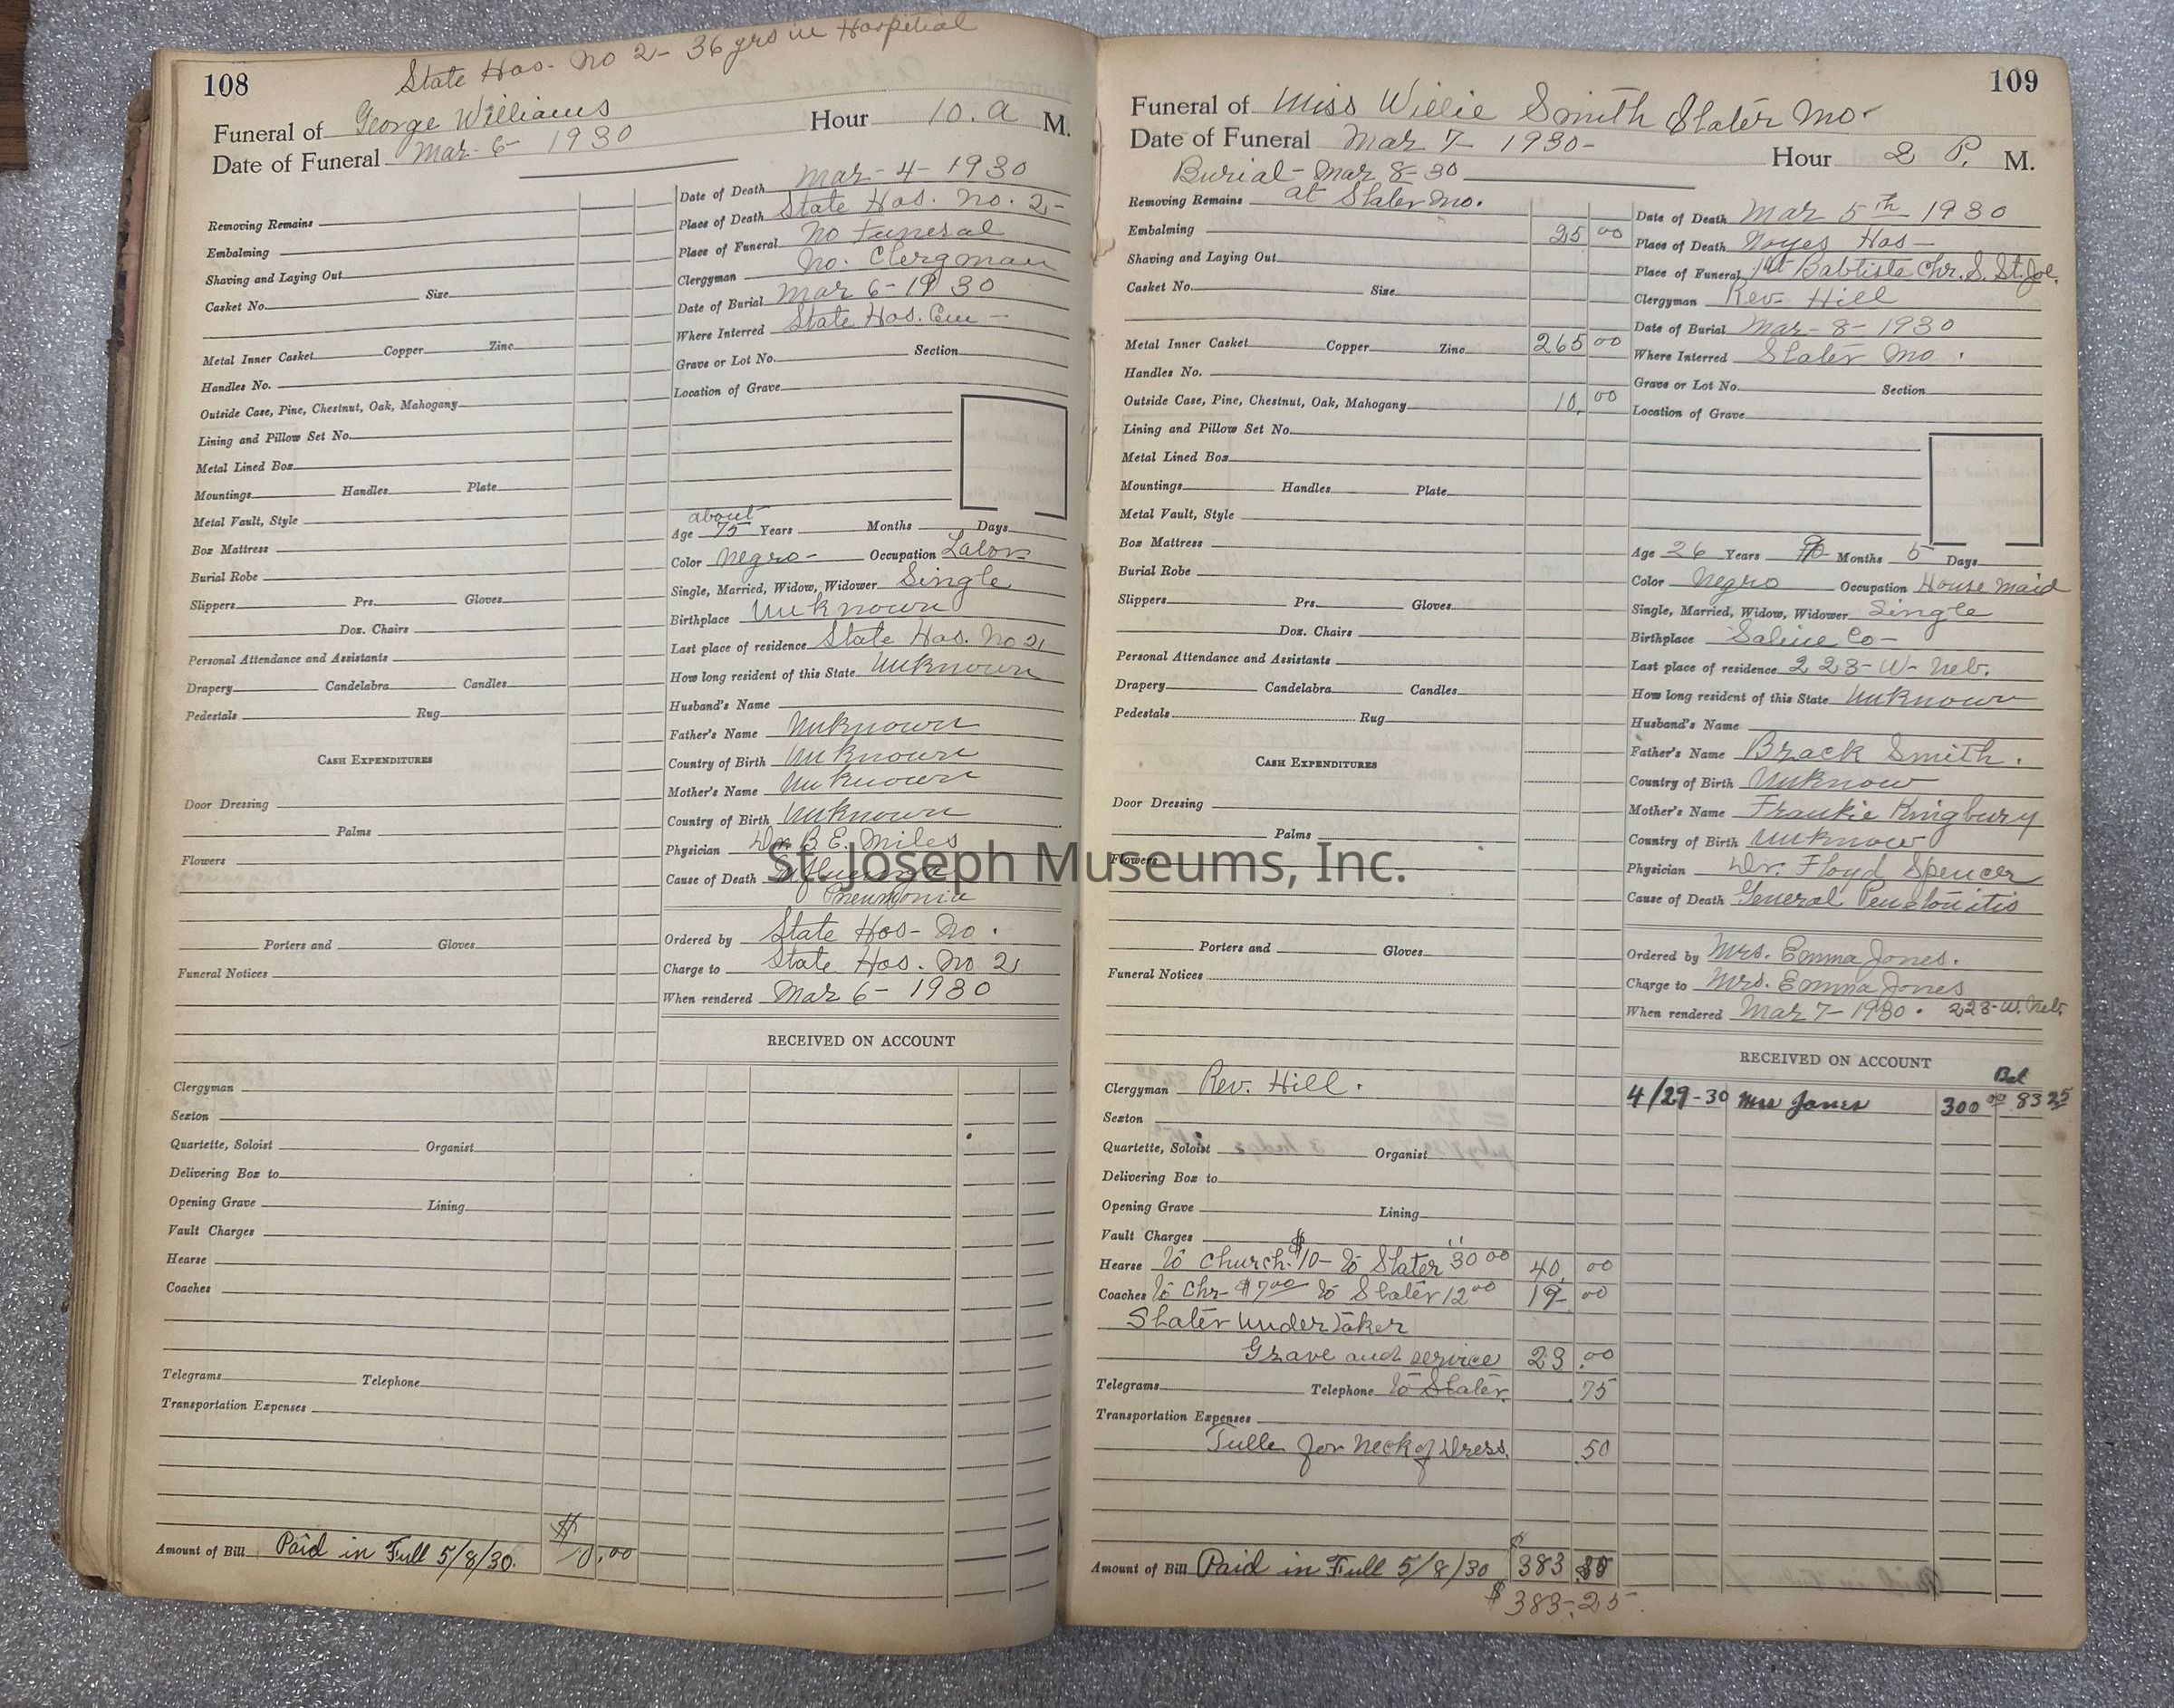 108
State Hos. No 2 - 36 yrs in Hospital
Funeral of George Williams Hour 10. A M.
Date of Funeral Mar 6 - 1930
Removing Remains
Embalming
Shaving and Laying Out
Casket No. Size
Metal Inner Casket Copper Zinc
Handles No.
Outside Case, Pine, Chestnut, Oak, Mahogany
Lining and Pillow Set No.
Metal Lined Box
Mountings Handles Plate
Metal Vault, Style
Box Mattress
Burial Robe
Slippers Prs. Gloves
Doz. Chairs
Personal Attendance and Assistants
Drapery Candelabra Candles
Pedestals Rug
CASH EXPENDITURES
Door Dressing
Palms
Flowers
Porters and Gloves
Funeral Notices
Clergyman
Sexton
Quartette, Soloist Organist
Delivering Box to
Opening Grave Lining
Vault Charges
Hearse
Coaches
Telegrams Telephone
Transportation Expenses
Amount of Bill Paid in Full 5/8/30. $ 10.00
Date of Death Mar - 4 - 1930
Place of Death State Hos. No. 2 -
Place of Funeral No Funeral
Clergyman No. Clergman
Date of Burial Mar 6 - 1930
Where Interred State Hos. Cem -
Grave or Lot No. Section
Location of Grave
about
Age 75 Years Months Days
Color Negro - Occupation Labor
Single, Married, Widow, Widower Single
Birthplace Unknown
Last place of residence State Hos. No 2
How long resident of this State Unknown
Husband's Name
Father's Name Unknown
Country of Birth Unknown
Mother's Name Unknown
Country of Birth Unknown
Physician Dr. B. E. Miles
Cause of Death Influenza
Pneumonia
Ordered by State Hos - No .
Charge to State Hos. No 2
When rendered Mar 6 - 1930
RECEIVED ON ACCOUNT
St. Joseph Museums, Inc.
109
Funeral of Miss Willie Smith Slater Mo.
Date of Funeral Mar 7 - 1930 - Hour 2 P. M.
Burial - Mar 8 - 30
at Slater Mo.
Removing Remains
Embalming 25 00
Shaving and Laying Out
Casket No. Size
Metal Inner Casket Copper Zinc 265 00
Handles No.
Outside Case, Pine, Chestnut, Oak, Mahogany 10. 00
Lining and Pillow Set No.
Metal Lined Box
Mountings Handles Plate
Metal Vault, Style
Box Mattress
Burial Robe
Slippers Prs. Gloves
Doz. Chairs
Personal Attendance and Assistants
Drapery Candelabra Candles
Pedestals Rug
CASH EXPENDITURES
Door Dressing
Palms
Flowers
Porters and Gloves
Funeral Notices
Clergyman Rev. Hill.
Sexton
Quartette, Soloist Organist
Delivering Box to
Opening Grave Lining
Vault Charges
Hearse To Church. $10 - To Slater 30 00 40. 00
Coaches To Chr - $7 00 To Slater 12 00 19 - 00
Slater Undertaker
Grave and service 23 .00
Telegrams Telephone To Slater. .75
Transportation Expenses
Tulle for Neck of Dress. .50
Amount of Bill Paid in Full 5/8/30 $ 383
$ 383.25
Date of Death Mar 5th - 1930
Place of Death Noyes Hos -
Place of Funeral 1st Babtiste Chr. S. St. Joe.
Clergyman Rev. Hill
Date of Burial Mar - 8 - 1930
Where Interred Slater Mo.
Grave or Lot No. Section
Location of Grave
Age 26 Years Months 5 Days
Color Negro Occupation House maid
Single, Married, Widow, Widower Single
Birthplace Saline Co -
Last place of residence 223 - W - Neb.
How long resident of this State Unknown
Husband's Name
Father's Name Brack Smith.
Country of Birth Unknow
Mother's Name Frankie Kingbury
Country of Birth Unknow
Physician Dr. Floyd Spencer
Cause of Death General
Ordered by Mrs. Emma Jones.
Charge to Mrs. Emma Jones
When rendered Mar 7 - 1930. 223 - W. Neb.
RECEIVED ON ACCOUNT
Bal
4/29 - 30 Mrs Jones 300 00 83 25